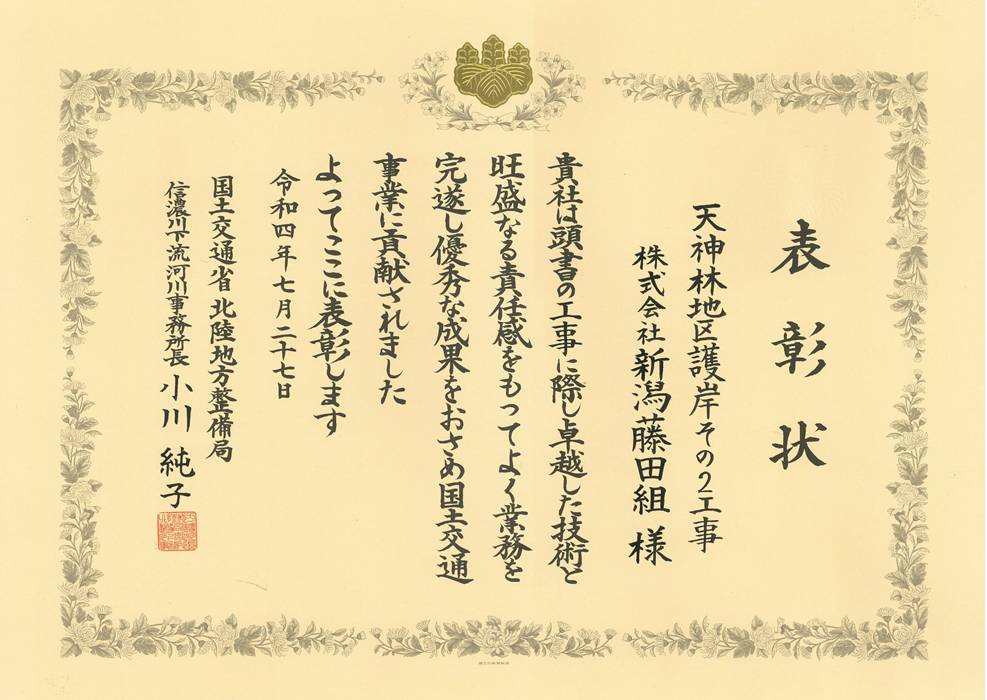 表彰状
天神林地区護岸その2工事
株式会社 新潟藤田組 様
貴社は頭書の工事に際し卓越した技術と
旺盛なる責任感をもってよく業務を
完遂し優秀な成果をおさめ国土交通
事業に貢献されました
よってここに表彰します
令和四年七月二十七日
国土交通省 北陸地方整備局
信濃川下流河川事務所長 小川 純子